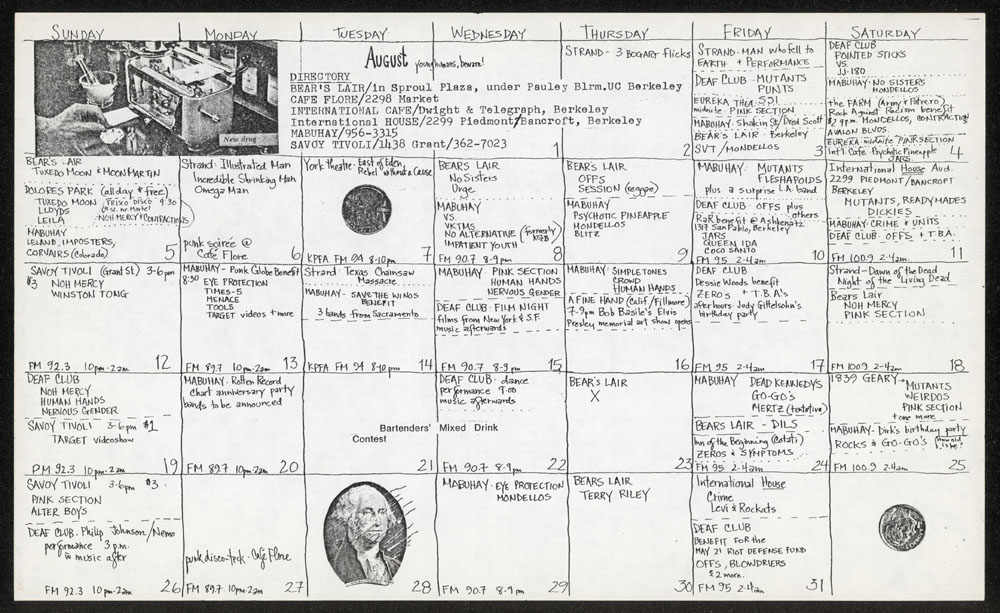 SUNDAY MONDAY TUESDAY WEDNESDAY THURSDAY FRIDAY SATURDAY
New drug
August young humans, beware!
DIRECTORY
BEAR'S LAIR/in Sproul Plaza, under Pauley Blrm.UC Berkeley
CAFE FLORE/2298 Market
INTERNATIONAL CAFE/Dwight & Telegraph, Berkeley
International HOUSE/2299 Piedmont/Bancroft, Berkeley
MABUHAY/956-3315
SAVOY TIVOLI/1438 Grant/362-7023
1
STRAND - 3 BOGART flicks
2
STRAND - MAN who fell to
EARTH + PERFORMANCE
DEAF CLUB - MUTANTS
PUNTS
EUREKA Thea. SSI
midnite PINK SECTION
MABUHAY - Shakin's, Dred Scott
BEAR'S LAIR - Berkeley
SVT / MONDELLOS
3
DEAF CLUB
POINTED STICKS
VS.
JJ-180
MABUHAY NO SISTERS
MONDELLOS
the FARM (Army & Potrero)
Rock Against Racism benefit
$2 9pm. MONDELLOS, CONTRACTIONS
AVALON BLVDS.
EUREKA - midnite PINK SECTION
Int'l Cafe Psychotic Pineapple
JARS
4
BEAR'S LAIR
TUXEDO MOON & MOON MARTIN
DOLORES PARK (all day & free)
TUXEDO MOON
LLOYDS
LEILA
FRISCO DISCO 9:30
NOH MERCY & CONTRACTIONS
MABUHAY
LELAND, IMPOSTERS,
CORVAIRS (Colorado)
5
Strand - Illustrated Man
Incredible Shrinking Man
Omega Man
punk soirée @
Cafe Flore
6
York Theatre - East of Eden,
Rebel without a Cause
KPFA FM 94 8-10pm
7
BEARS LAIR
No Sisters
Urge
MABUHAY
VS.
VKTMS
NO ALTERNATIVE (formerly KGB)
IMPATIENT YOUTH
FM 90.7 8-9pm
8
BEAR'S LAIR
OFFS
SESSION (reggae)
MABUHAY
PSYCHOTIC PINEAPPLE
MONDELLOS
BLITZ
9
MABUHAY - MUTANTS
FLESHAPOIDS
plus a surprise L.A. band
DEAF CLUB - OFFS plus
others
RaR benefit @ Ashkenatz
1317 San Pablo, Berkeley
JARS
QUEEN IDA
COCO SANTO
FM 95 2-4am
10
International House Aud.
2299 PIEDMONT/BANCROFT
BERKELEY
MUTANTS, READYMADES
DICKIES
MABUHAY - CRIME & UNITS
DEAF CLUB - OFFS + T.B.A.
FM 100.9 2-4am
11
SAVOY TIVOLI (Grant St.) 3-6pm
$3 NOH MERCY
WINSTON TONG
FM 92.3 10pm-2am
12
MABUHAY - Punk Globe Benefit
8:30 EYE PROTECTION
TIMES-5
MENACE
TOOLS
TARGET videos + more
FM 89.7 10pm-2am
13
Strand - Texas Chainsaw
Massacre
MABUHAY - SAVE THE WINOS
BENEFIT
3 bands from Sacramento
KPFA FM 94 8-10pm
14
MABUHAY - PINK SECTION
HUMAN HANDS
NERVOUS GENDER
DEAF CLUB - FILM NIGHT
films from New York & S.F.
music afterwards
FM 90.7 8-9pm
15
MABUHAY - SIMPLETONES
CROWD
HUMAN HANDS
A FINE HAND (Calif/Fillmore)
7-9pm Bob Basile's Elvis
Presley memorial art show opens
16
DEAF CLUB
Dessie Woods benefit
ZEROS + T.B.A's
after hours - Jody Gittelsohn's
birthday party
FM 95 2-4am
17
Strand - Dawn of the Dead
Night of the Living Dead
Bears Lair
NOH MERCY
PINK SECTION
FM 100.9 2-4am
18
DEAF CLUB
NOH MERCY
HUMAN HANDS
NERVOUS GENDER
SAVOY TIVOLI 3-6pm $1
TARGET videoshow
FM 92.3 10pm-2am
19
MABUHAY - Rotten Record
Chart anniversary party
bands to be announced
FM 89.7 10pm-2am
20
Bartenders' Mixed Drink
Contest
21
DEAF CLUB - dance
performance 9:00
music afterwards
FM 90.7 8-9pm
22
BEAR'S LAIR
X
23
MABUHAY DEAD KENNEDYS
GO-GO'S
MERTZ (tentative)
BEARS LAIR - DILS
Inn of the Beginning (Cotati)
ZEROS & SYMPTOMS
FM 95 2-4am
24
1839 GEARY - MUTANTS
WEIRDOS
PINK SECTION
+ one more
MABUHAY - Dirk's birthday party
ROCKS & GO-GO'S (how old is he?)
FM 100.9 2-4am
25
SAVOY TIVOLI 3-6pm $3
PINK SECTION
ALTER BOYS
DEAF CLUB - Philip Johnson/Nemo
performance 3 p.m.
music after
FM 92.3 10pm-2am
26
punk disco-teck - Cafe Flore
FM 89.7 10pm-2am
27
28
MABUHAY - EYE PROTECTION
MONDELLOS
FM 90.7 8-9pm
29
BEARS LAIR
TERRY RILEY
30
International House
Crime
Levi & Rockats
DEAF CLUB
BENEFIT FOR the
MAY 21 RIOT DEFENSE FUND
OFFS, BLOWDRIERS
& 2 more.
FM 95 2-4am
31